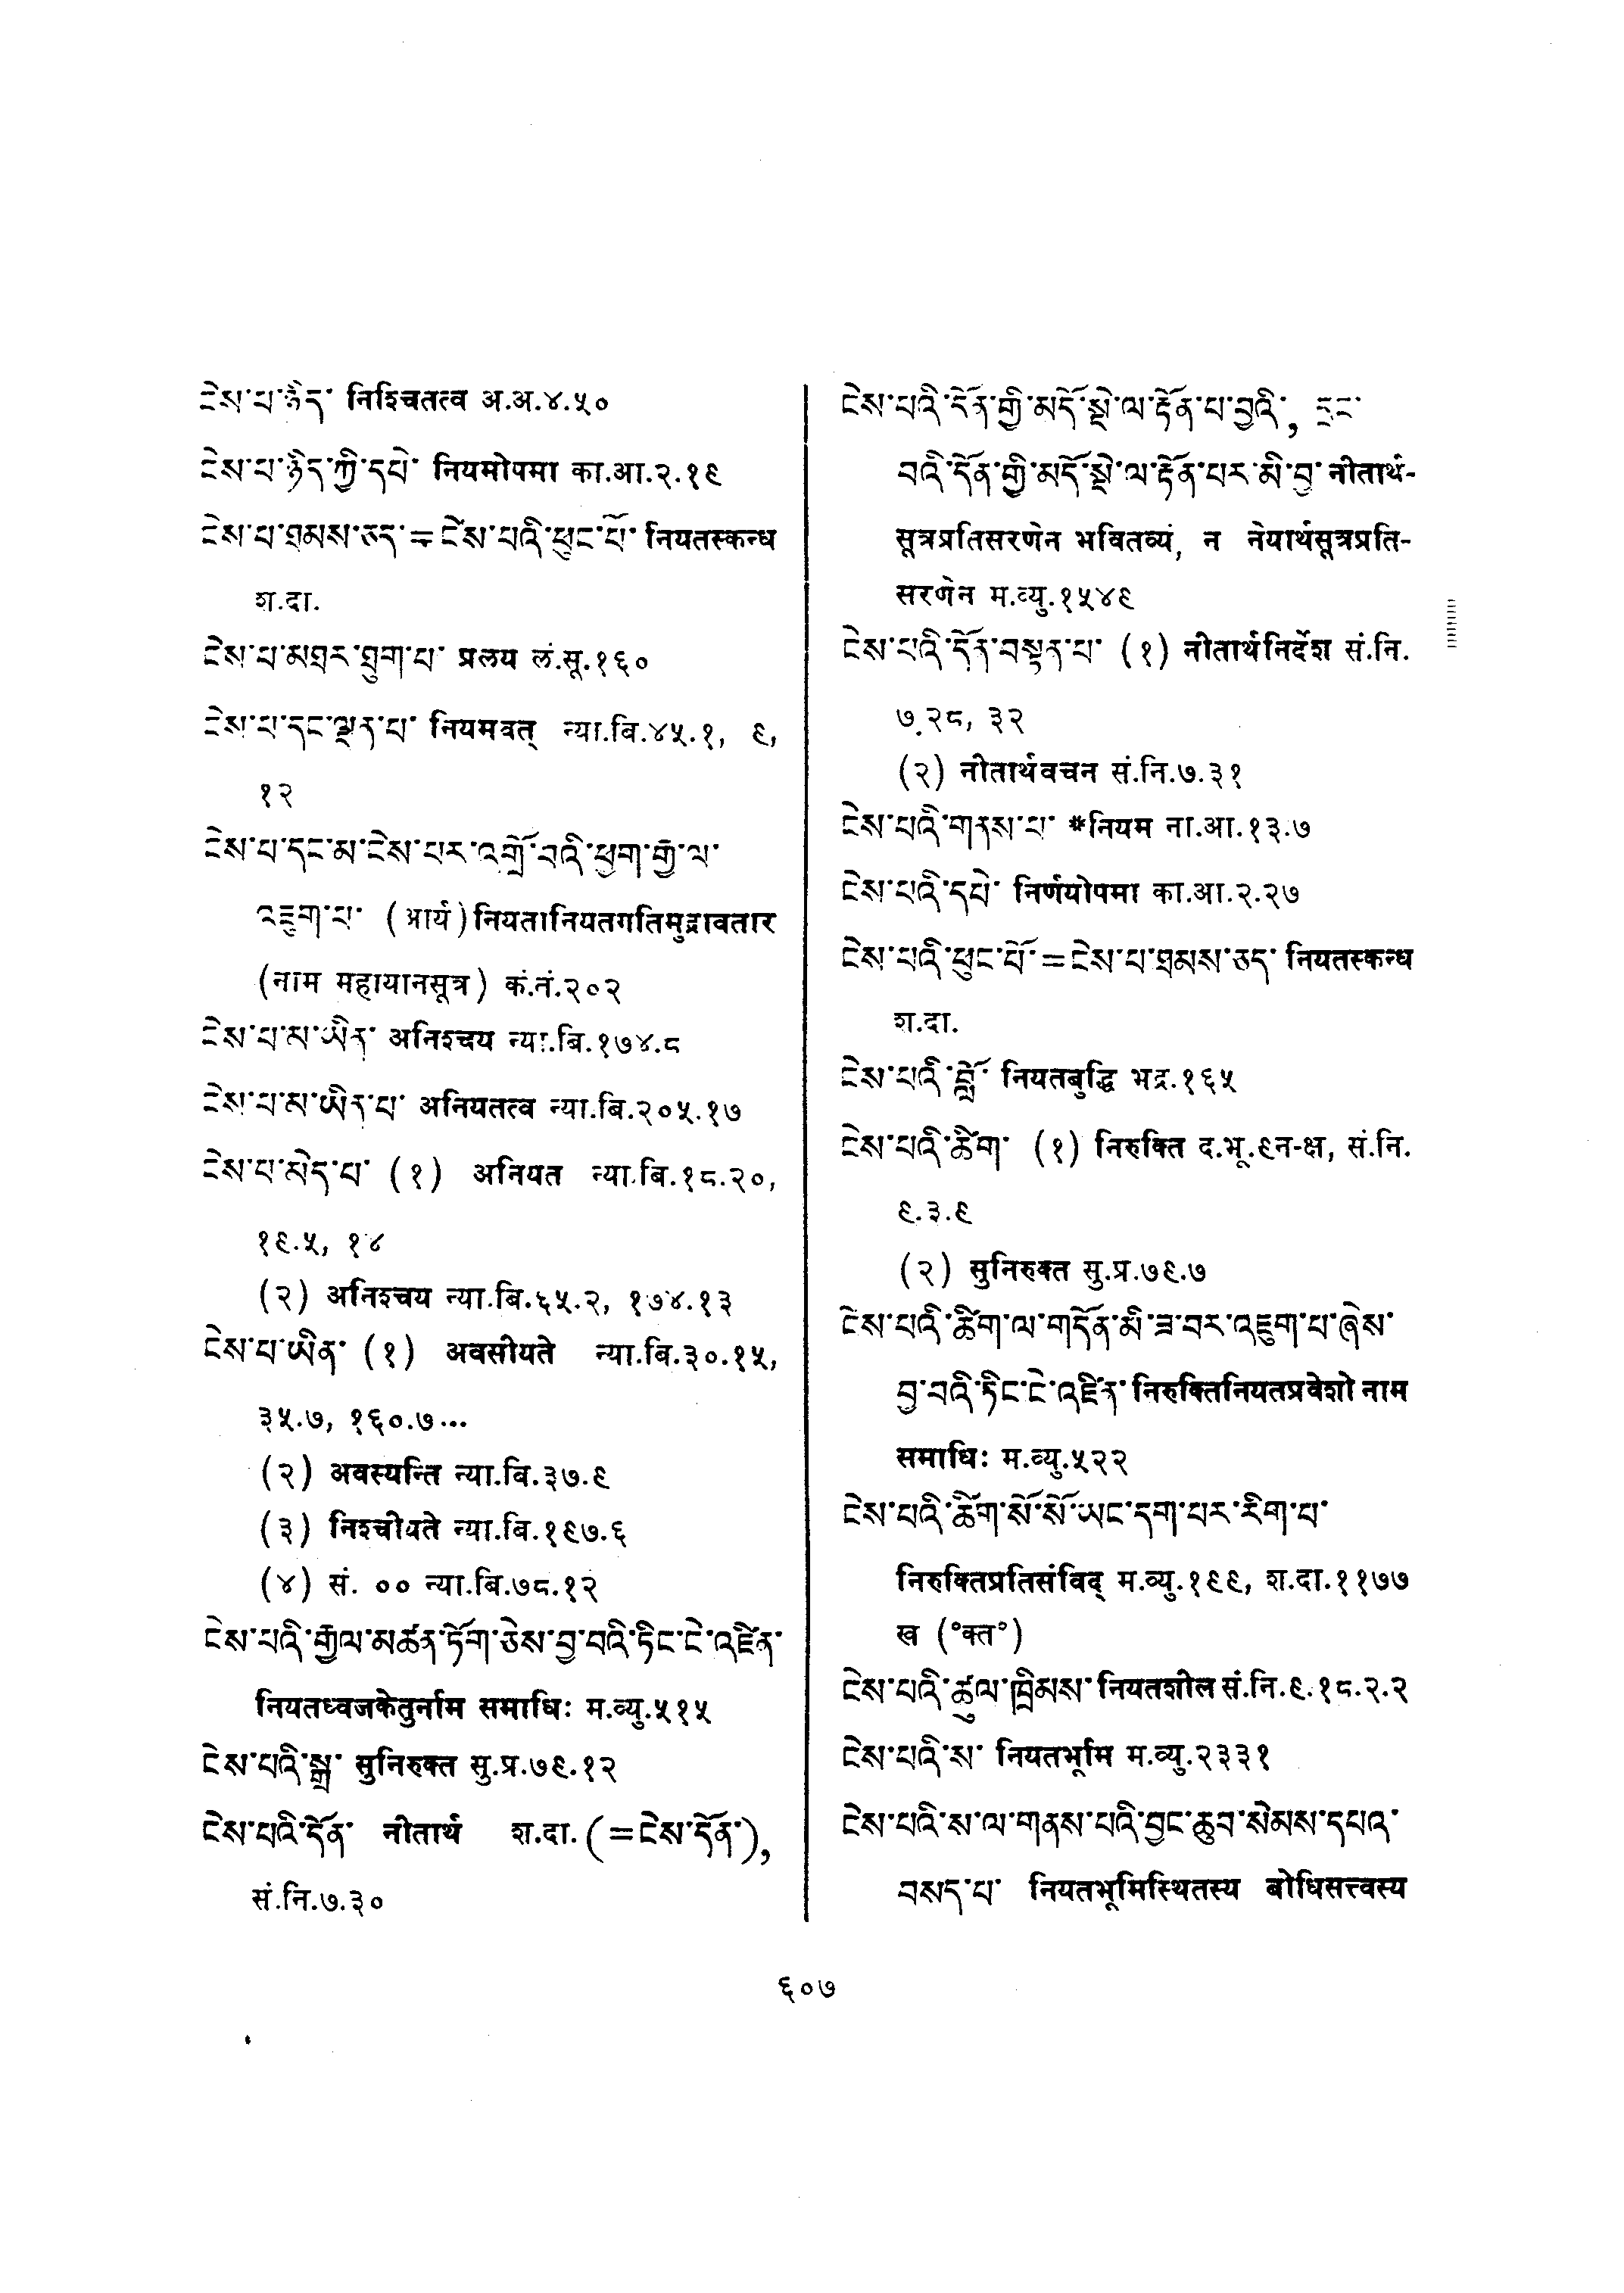 ངེས་པ་ཉིད་ निश्चितत्व अ.अ.४.५०
ངེས་པ་ཉིད་ཀྱི་དཔེ་ नियमोपमा का.आ.२.१९
ངེས་པ་ཐམས་ཅད་ = ངེས་པའི་ཕུང་པོ་ नियतस्कन्ध
श.दा.
ངེས་པ་མཐར་ཐུག་པ་ प्रलय लं.सू.१६०
ངེས་པ་དང་ལྡན་པ་ नियमवत् न्या.बि.४५.१, ९,
१२
ངེས་པ་དང་མ་ངེས་པར་འགྲོ་བའི་ཕྱག་རྒྱ་ལ་
འཇུག་པ་ (आर्य) नियतानियतगतिमुद्रावतार
(नाम महायानसूत्र) कं.तं.२०२
ངེས་པ་མ་ཡིན་ अनिश्चय न्या.बि.१७४.८
ངེས་པ་མ་ཡིན་པ་ अनियतत्व न्या.बि.२०५.१७
ངེས་པ་མེད་པ་ (१) अनियत न्या.बि.१८.२०,
१९.५, १४
(२) अनिश्चय न्या.बि.६५.२, १७४.१३
ངེས་པ་ཡིན་ (१) अवसीयते न्या.बि.३०.१५,
३५.७, १६०.७...
(२) अवस्यन्ति न्या.बि.३७.९
(३) निश्चीयते न्या.बि.१९७.६
(४) सं. ०० न्या.बि.७८.१२
ངེས་པའི་རྒྱལ་མཚན་ཏོག་ཅེས་བྱ་བའི་ཏིང་ངེ་འཛིན་
नियतध्वजकेतुर्नाम समाधिः म.व्यु.५१५
ངེས་པའི་སྒྲ་ सुनिरुक्त सु.प्र.७९.१२
ངེས་པའི་དོན་ नीतार्थ श.दा. (=ངེས་དོན་),
सं.नि.७.३०
ངེས་པའི་དོན་གྱི་མདོ་སྡེ་ལ་རྟོན་པ་བྱའི་, དྲང་
བའི་དོན་གྱི་མདོ་སྡེ་ལ་རྟོན་པར་མི་བྱ་ नीतार्थ-
सूत्रप्रतिसरणेन भवितव्यं, न नेयार्थसूत्रप्रति-
सरणेन म.व्यु.१५४९
ངེས་པའི་དོན་བསྟན་པ་ (१) नीतार्थनिर्देश सं.नि.
७.२८, ३२
(२) नीतार्थवचन सं.नि.७.३१
ངེས་པའི་གནས་པ་ *नियम ना.आ.१३.७
ངེས་པའི་དཔེ་ निर्णयोपमा का.आ.२.२७
ངེས་པའི་ཕུང་པོ་ = ངེས་པ་ཐམས་ཅད་ नियतस्कन्ध
श.दा.
ངེས་པའི་བློ་ नियतबुद्धि भद्र.१६५
ངེས་པའི་ཚིག་ (१) निरुक्ति द.भू.९न-क्ष, सं.नि.
९.३.९
(२) सुनिरुक्त सु.प्र.७९.७
ངེས་པའི་ཚིག་ལ་གདོན་མི་ཟ་བར་འཇུག་པ་ཞེས་
བྱ་བའི་ཏིང་ངེ་འཛིན་ निरुक्तिनियतप्रवेशो नाम
समाधिः म.व्यु.५२२
ངེས་པའི་ཚིག་སོ་སོ་ཡང་དག་པར་རིག་པ་
निरुक्तिप्रतिसंविद् म.व्यु.१९९, श.दा.११७७
ख (°क्त°)
ངེས་པའི་ཚུལ་ཁྲིམས་ नियतशील सं.नि.९.१८.२.२
ངེས་པའི་ས་ नियतभूमि म.व्यु.२३३१
ངེས་པའི་ས་ལ་གནས་པའི་བྱང་ཆུབ་སེམས་དཔའ་
བསད་པ་ नियतभूमिस्थितस्य बोधिसत्त्वस्य
६०७